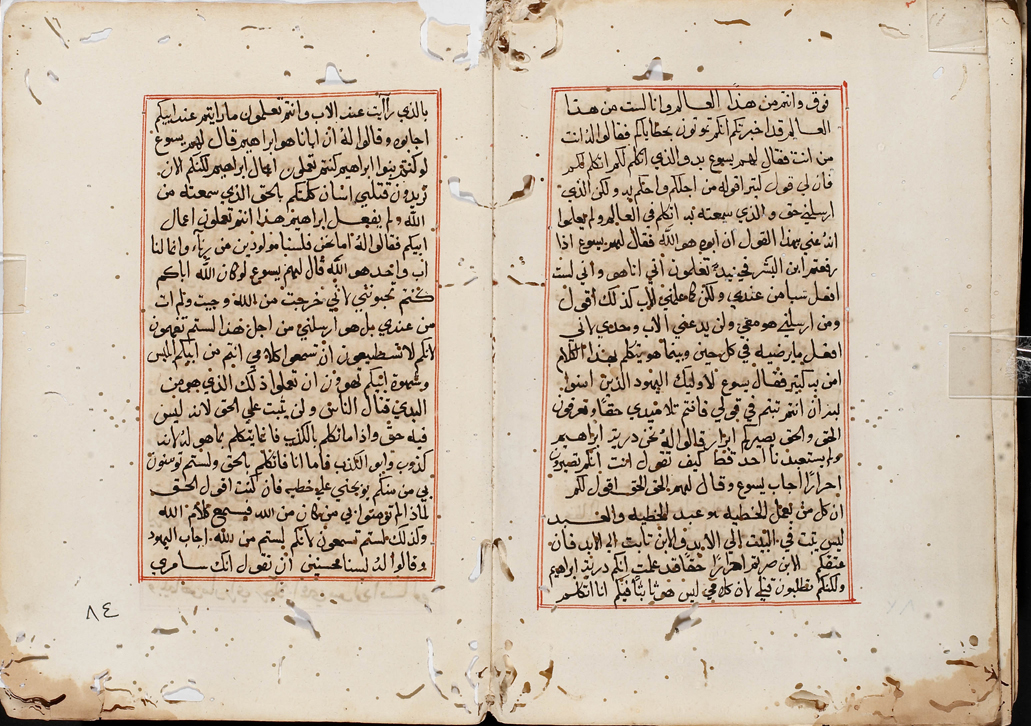 فوق وانتم من هذا العالم وانا لست من هذا
العالم قد اخبرتكم انكم تموتون بخطاياكم فقالوا له انت
من انت فقال لهم يسوع بدو الذي اتكلم لكم انكم لكم
فان لي قول كثير اقوله من اجلكم واحكم به ولكن الذي
ارسلني حق والذي سمعته به اتكلم في العالم ولم يعلموا
انه عني بهذا القول ان ابوه هو الله فقال لهم يسوع اذا
رفعتم ابن البشر فحينيذ تعلمون اني انا هو واني لست
افعل شيا من عندي ولكن كما علمني الاب كذلك أقول
ومن ارسلني هو معي ولن يدعني الاب وحدي لاني
افعل ما يرضيه في كل حين وبينما هو يتكلم بهذا الكلام
امن به كثير فقال يسوع لاوليك اليهود الذين امنوا
به ان انتم ثبتم في قولي فانتم تلاميذي حقا وتعرفون
الحق والحق يصيركم احرار قالوا له نحن ذرية ابراهيم
ولم يستعبدنا احد قط كيف تقول انت انكم تصيرون
احرارًا أجاب يسوع وقال لهم الحق الحق اقول لكم
ان كل من يعمل الخطيه هو عبد للخطيه والعبد
ليس يثبت في البيت الي الابد والابن ثابت الي الابد فان
عتقكم الابن صرتم احرارًا حقا قد علمت انكم ذرية ابراهيم
ولكنكم تطلبون قتلي لان كلامي ليس هو ثابتًا فيكم انا اتكلم
بالذي رأيت عند الاب وانتم تعلمون ما رايتم عند ابيكم
اجابوه وقالوا له ان ابانا هو ابراهيم قال لهم يسوع
لو كنتم بنوا ابراهيم كنتم تعملون اعمال ابراهيم لكنكم الان
تريدون قتلي انسان كلمتكم بالحق الذي سمعته من
الله ولم يفعل ابراهيم هذا انتم تعملون اعمال
ابيكم فقالوا له اما نحن فلسنا مولودين من زناء وانما لنا
اب واحد هو الله قال لهم يسوع لو كان الله اباكم
كنتم تحبونني لأني خرجت من الله وجيت ولم ات
من عندي بل هو ارسلني من اجل هذا لستم تفهمون
لانكم لا تستطيعون ان تسمعوا كلامي انتم من ابيكم ابليس
وشهوة ابيكم تهوون ان تعملوا ذلك الذي هو من
البدي قتال الناس ولن يثبت علي الحق لانه ليس
فيه حق واذا ما تكلم بالكذب فانما يتكلم بما هو له لانه
كذوب وابو الكذب فاما انا فاتكلم بالحق ولستم تومنون
بي من منكم يوبخني علي خطيه فان كنت اقول الحق
لماذا لم تؤمنوا بي من كان من الله فيسمع كلام الله
وكذلك لستم تسمعون لانكم لستم من الله اجاب اليهود
وقالوا له لسنا محسنين ان نقول انك سامري
٨٤